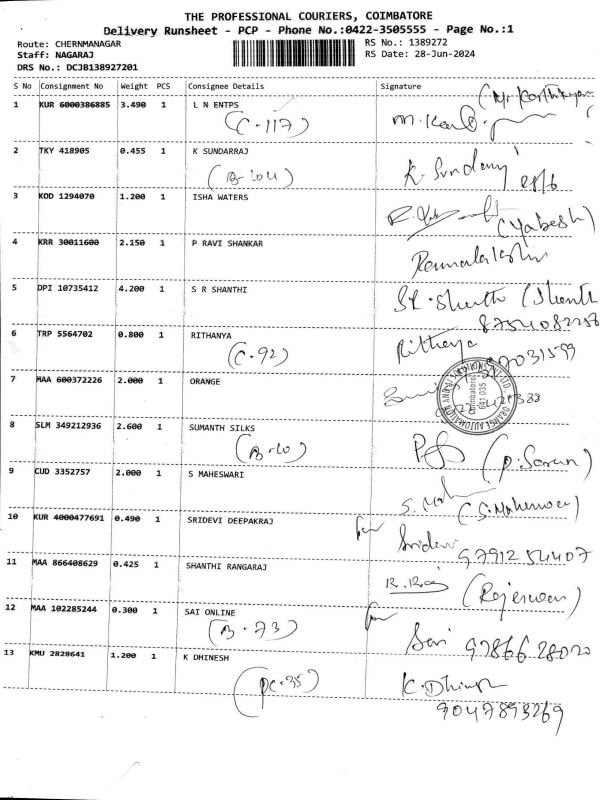 THE PROFESSIONAL COURIERS, COIMBATORE
Delivery Runsheet - PCP - Phone No.:0422-3505555 - Page No.:1
Route: CHERNMANAGAR RS No.: 1389272
Staff: NAGARAJ RS Date: 28-Jun-2024
DRS No.: DCJB138927201
S No Consignment No Weight PCS Consignee Details Signature
1 KUR 6000386885 3.490 1 L N ENTPS
(C-117)
2 TKY 418905 0.455 1 K SUNDARRAJ
3 KOD 1294070 1.200 1 ISHA WATERS
(Yabesh)
4 KRR 30011600 2.150 1 P RAVI SHANKAR
5 DPI 10735412 4.200 1 S R SHANTHI
6 TRP 5564702 0.800 1 RITHANYA Rithanya
(C-92)
7 MAA 600372226 2.000 1 ORANGE
Coimbatore
641 035
8 SLM 349212936 2.600 1 SUMANTH SILKS
(P. Saran)
9 CUD 3352757 2.000 1 S MAHESWARI
10 KUR 4000477691 0.490 1 SRIDEVI DEEPAKRAJ Sridevi
9791254407
11 MAA 866408629 0.425 1 SHANTHI RANGARAJ
12 MAA 102285244 0.300 1 SAI ONLINE
(B-73)
13 KMU 2828641 1.200 1 K DHINESH K. Dhinesh
(DC-35)
9047893269